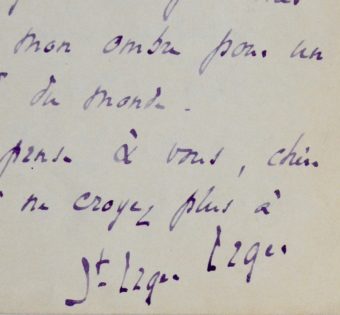 mon ombre pour un
du monde.
pense à vous, chère
ne croyez plus à
St-Leger Leger